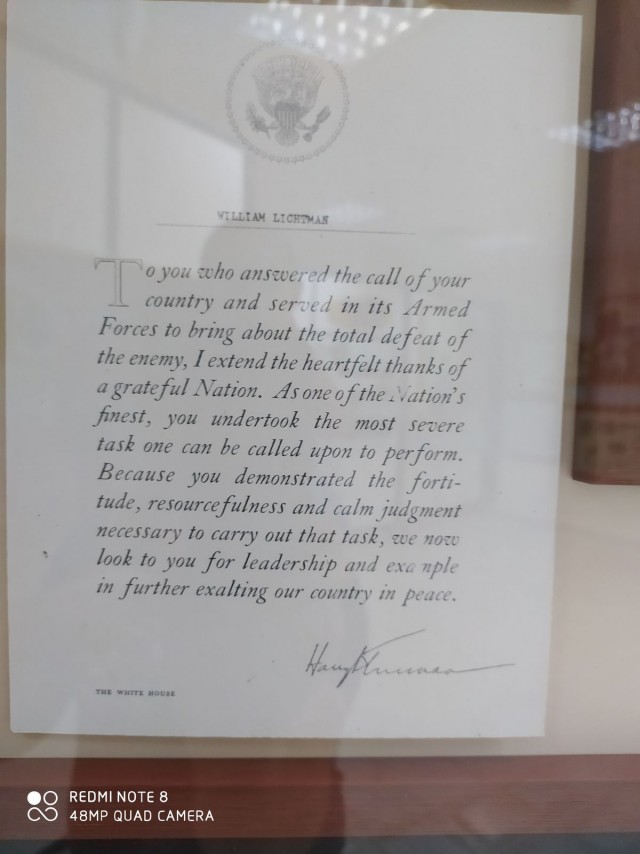 WILLIAM LICHTMAN
To you who answered the call of your
country and served in its Armed
Forces to bring about the total defeat of
the enemy, I extend the heartfelt thanks of
a grateful Nation. As one of the Nation's
finest, you undertook the most severe
task one can be called upon to perform.
Because you demonstrated the forti-
tude, resourcefulness and calm judgment
necessary to carry out that task, we now
look to you for leadership and example
in further exalting our country in peace.
Harry Truman
THE WHITE HOUSE
REDMI NOTE 8
48MP QUAD CAMERA